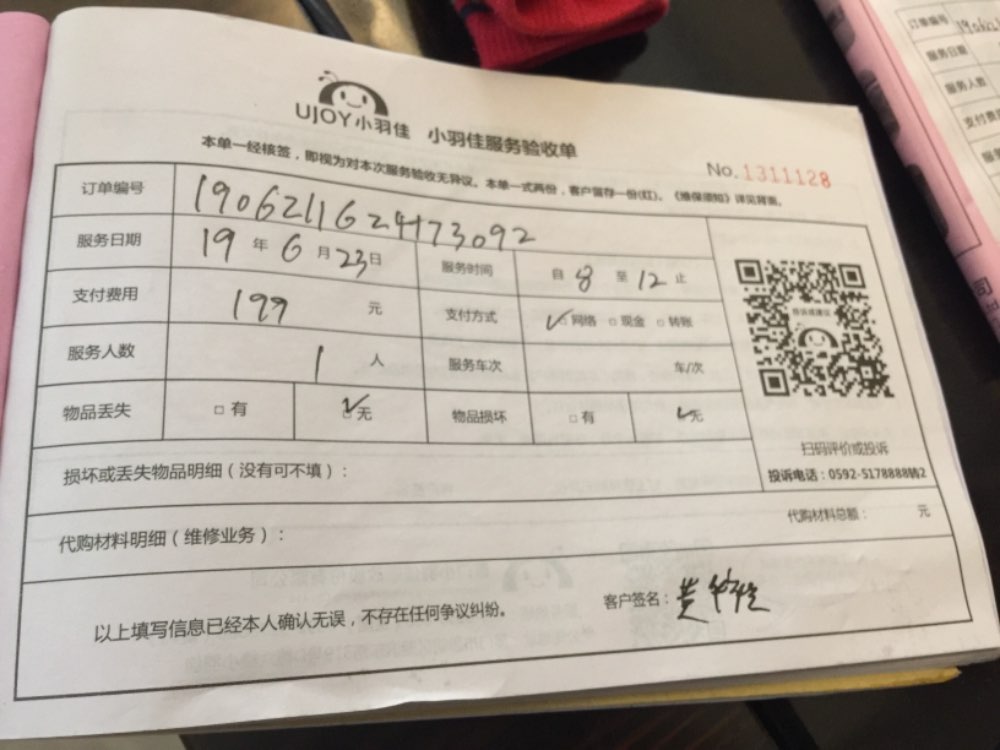 UJOY小羽佳 小羽佳服务验收单
No.1311128
本单一经核签，即视为对本次服务验收无异议。本单一式两份，客户留存一份(红)。《维保须知》详见背面。
订单编号 190621162473092
服务日期 19年6月23日 服务时间 自8至12止
支付费用 199元 支付方式 ✓□网络 □现金 □转账
服务人数 1人 服务车次 车/次
物品丢失 □有 ☑无 物品损坏 □有 ✓无
扫码评价或投诉
投诉电话：0592-5178888转2
损坏或丢失物品明细（没有可不填）：
代购材料明细（维修业务）： 代购材料总额： 元
以上填写信息已经本人确认无误，不存在任何争议纠纷。 客户签名：
订单编号
服务日期
服务人数